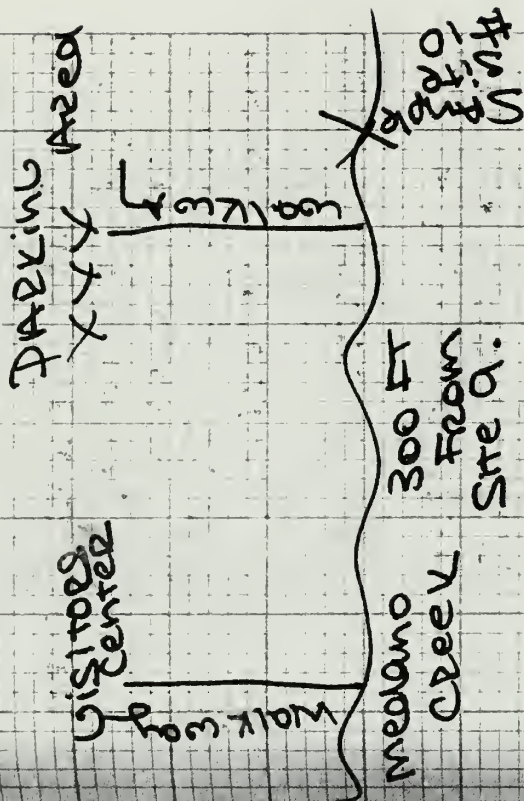 PARKING AREA
X X X
VISITORS
CENTER
walkway
walkway
medano
creek
300 FT
FROM
Site 9.